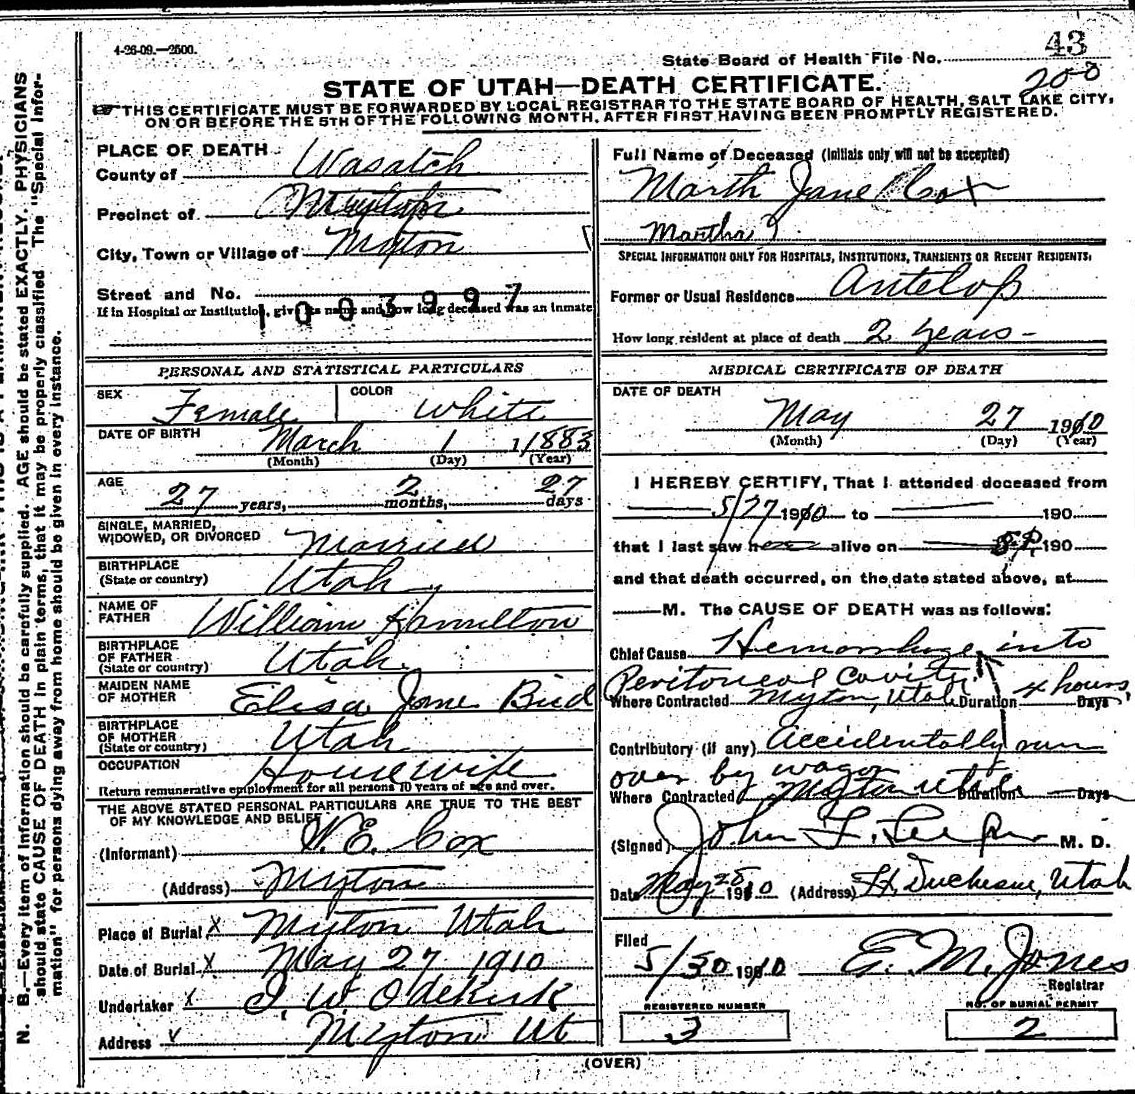 4-26-09.—2500.
43
State Board of Health File No.
200
STATE OF UTAH—DEATH CERTIFICATE.
THIS CERTIFICATE MUST BE FORWARDED BY LOCAL REGISTRAR TO THE STATE BOARD OF HEALTH, SALT LAKE CITY,
ON OR BEFORE THE 5TH OF THE FOLLOWING MONTH, AFTER FIRST HAVING BEEN PROMPTLY REGISTERED.
PLACE OF DEATH
County of Wasatch
Precinct of
City, Town or Village of Myton
Street and No.
1003997
If in Hospital or Institution, give its name and how long deceased was an inmate
PERSONAL AND STATISTICAL PARTICULARS
SEX Female COLOR White
DATE OF BIRTH March 1 1883
(Month) (Day) (Year)
AGE 27 years, 2 months, 27 days
SINGLE, MARRIED,
WIDOWED, OR DIVORCED Married
BIRTHPLACE
(State or country) Utah
NAME OF
FATHER William Hamilton
BIRTHPLACE
OF FATHER
(State or country) Utah
MAIDEN NAME
OF MOTHER Elisa Jane Bird
BIRTHPLACE
OF MOTHER
(State or country) Utah
OCCUPATION Housewife
Return remunerative employment for all persons 10 years of age and over.
THE ABOVE STATED PERSONAL PARTICULARS ARE TRUE TO THE BEST
OF MY KNOWLEDGE AND BELIEF
(Informant) W.E. Cox
(Address) Myton
Place of Burial X Myton Utah
Date of Burial X May 27 1910
Undertaker X J. W. Odekirk
Address Myton Ut
Full Name of Deceased (Initials only will not be accepted)
Marth Jane Cox
Martha ?
SPECIAL INFORMATION ONLY FOR HOSPITALS, INSTITUTIONS, TRANSIENTS OR RECENT RESIDENTS:
Former or Usual Residence Antelop
How long resident at place of death 2 years
MEDICAL CERTIFICATE OF DEATH
DATE OF DEATH
May 27 1910
(Month) (Day) (Year)
I HEREBY CERTIFY, That I attended deceased from
5/27 1910 to 190
that I last saw her alive on 190
and that death occurred, on the date stated above, at
M. The CAUSE OF DEATH was as follows:
Chief Cause Hemorrhage into
Peritoneal Cavity
Where Contracted Myton, Utah Duration 4 hours Days
Contributory (if any) Accidentally run
over by wagon
Where Contracted Myton Utah Duration Days
(Signed) John F. M. D.
Date May 28 1910 (Address) Ft. Duchesne, Utah
Filed
5/30 1910 E. M. Jones
Registrar
REGISTERED NUMBER NO. OF BURIAL PERMIT
3 2
(OVER)
N. B.—Every item of information should be carefully supplied. AGE should be stated EXACTLY. PHYSICIANS
should state CAUSE OF DEATH in plain terms, that it may be properly classified. The "Special Infor-
mation" for persons dying away from home should be given in every instance.